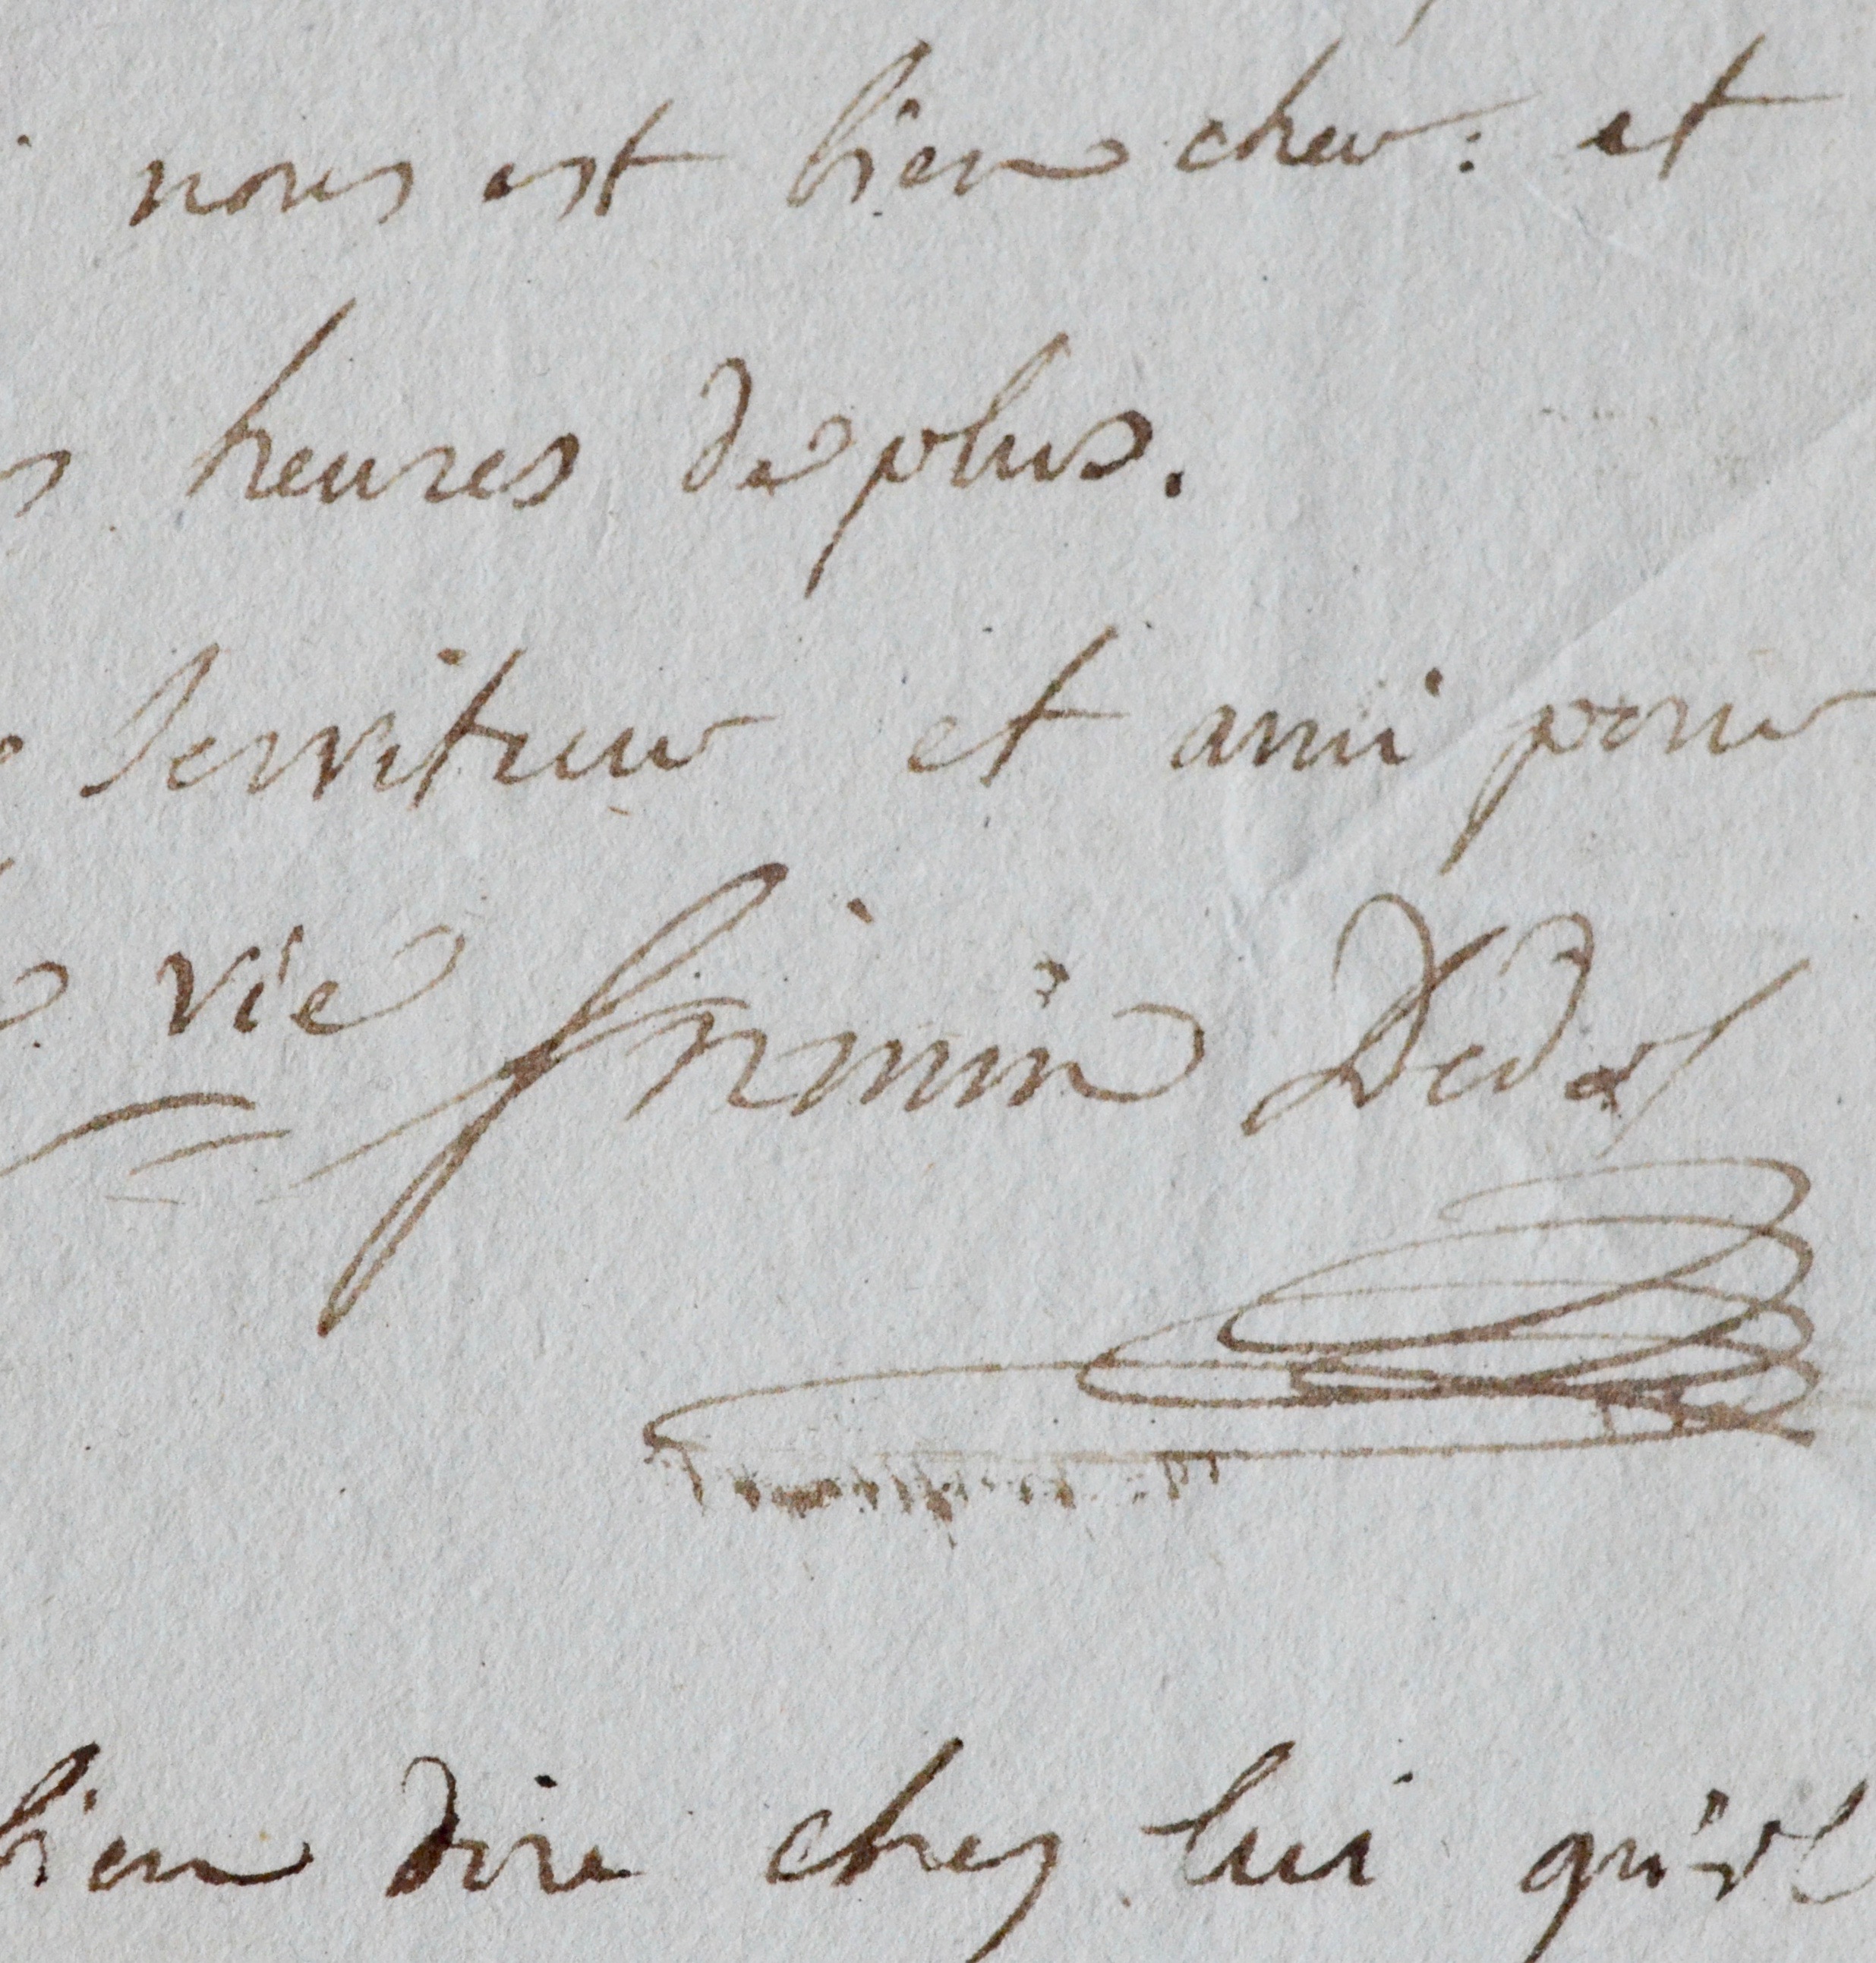 nous est bien cher : et
heures de plus.
Serviteur et ami pour
vie firmin Didot
bien dire chez lui qu'il